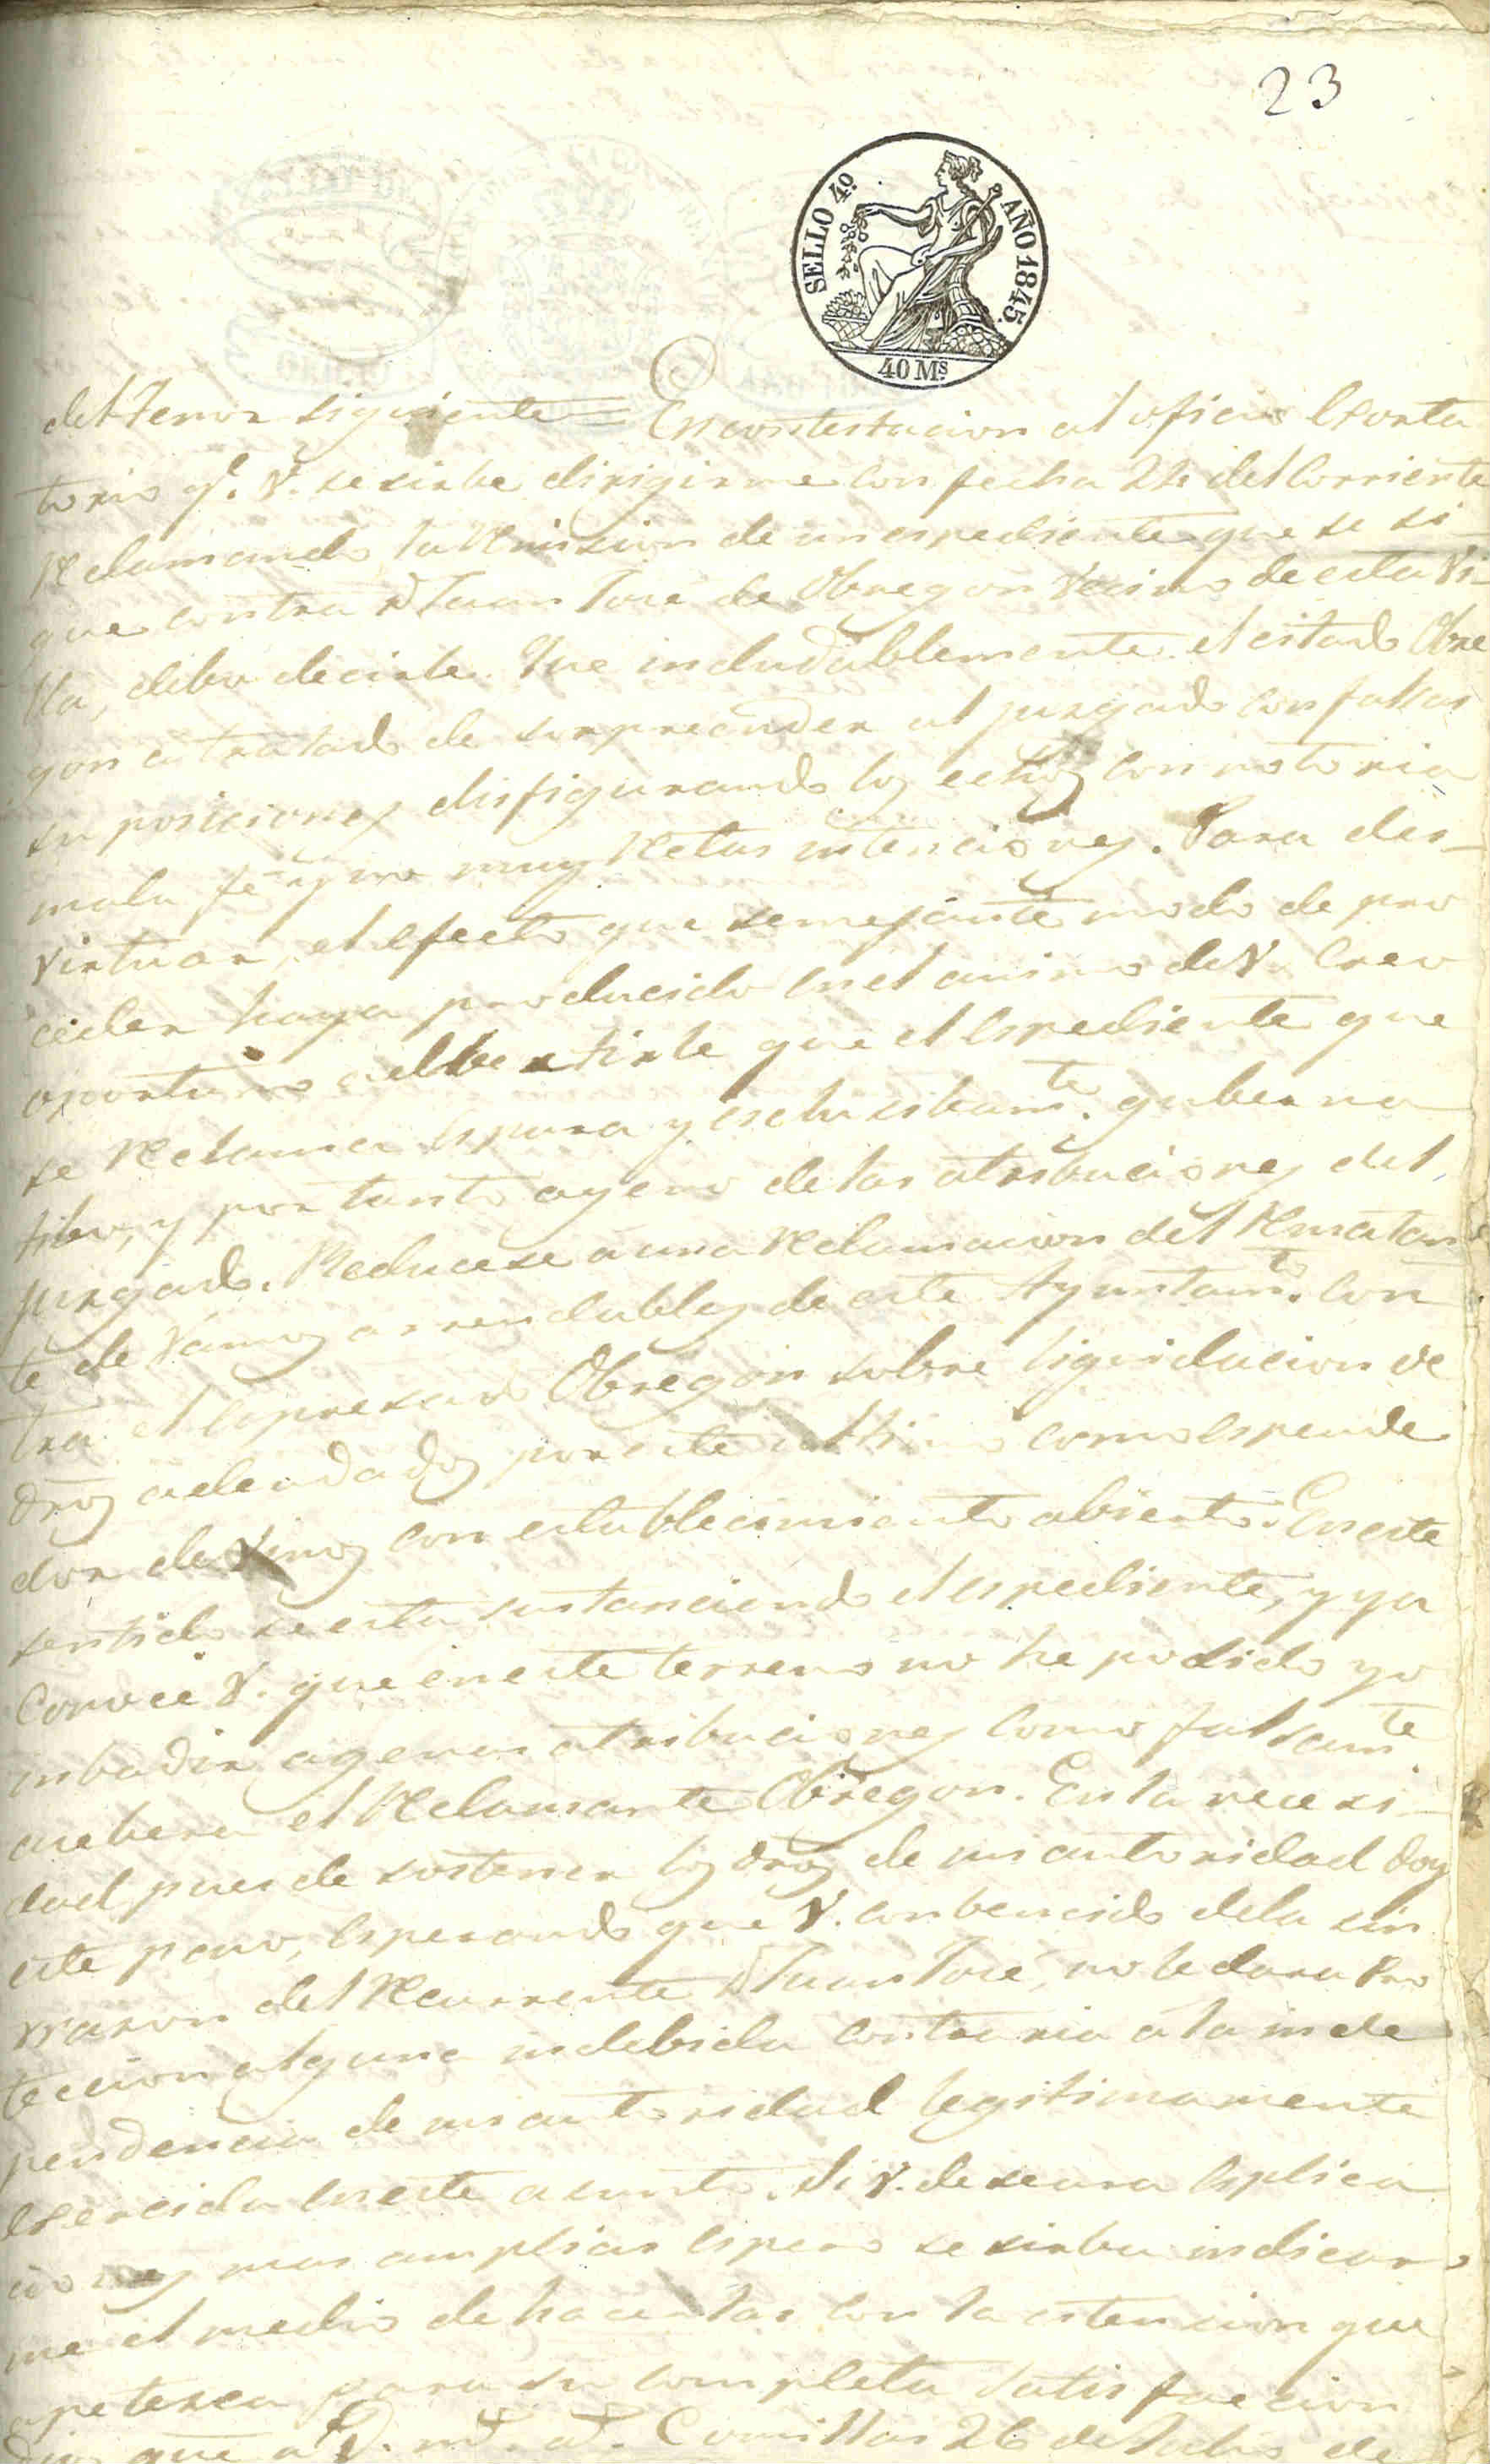 23
SELLO 4º. AÑO 1845.
40 Ms
del tenor siguiente = En contestacion al oficio Esorta
torio q.e V. se sirbe dirigirme con fecha 24 del Corriente
reclamando la remision de un espediente que se si
gue contra Dn Juan José de Obregon Vecino de esta Vi-
lla, debo decirle. Que indudablemente el citado Obre
gon á tratado de surpreender al juzgado con falsas
suposiciones disfigurando los echos con notoria
mala fé, y no muy retas intenciones. Para des-
virtuar, el efecto que semejante modo de pro
ceder haya producido en el animo de V. Creo
oportuno adbertirle que el Espediente que
se reclama es pura y esclusibam.te guberna
tibo, y por tanto ageno de las atribuciones del
juzgado. Reducese a una reclamacion del rematan
te de ramos arrendables de este Ayuntam.to con
tra el Espresado Obregon sobre liquidacion de
dros adeudados por este ultimo como espende
dor de Vinos con establecimiento abierto. En este
sentido se esta sustanciendo el espediente, y ya
Conoce V. que en este terreno no he podido yo
imbadir agenas atribuciones como falsam.te
asebera el reclamante Obregon. En la necesi-
dad pues de sostener los dros de mi autoridad doy
este paso, esperando que V. conbencido de la sin
rrazon del recurrente Dn Juan José, no le dara Pro
teccion alguna indebida contraria a la inde
pendencia de mi autoridad legitimamente
esercida en este asunto. Si V. deseara esplica
ciones mas amplias espero se sirba indicar
me el medio de hacerlas con la estension que
apetezca para su completa satisfaccion
Dios gue a V. ms. as. Comillas 26 de Julio de